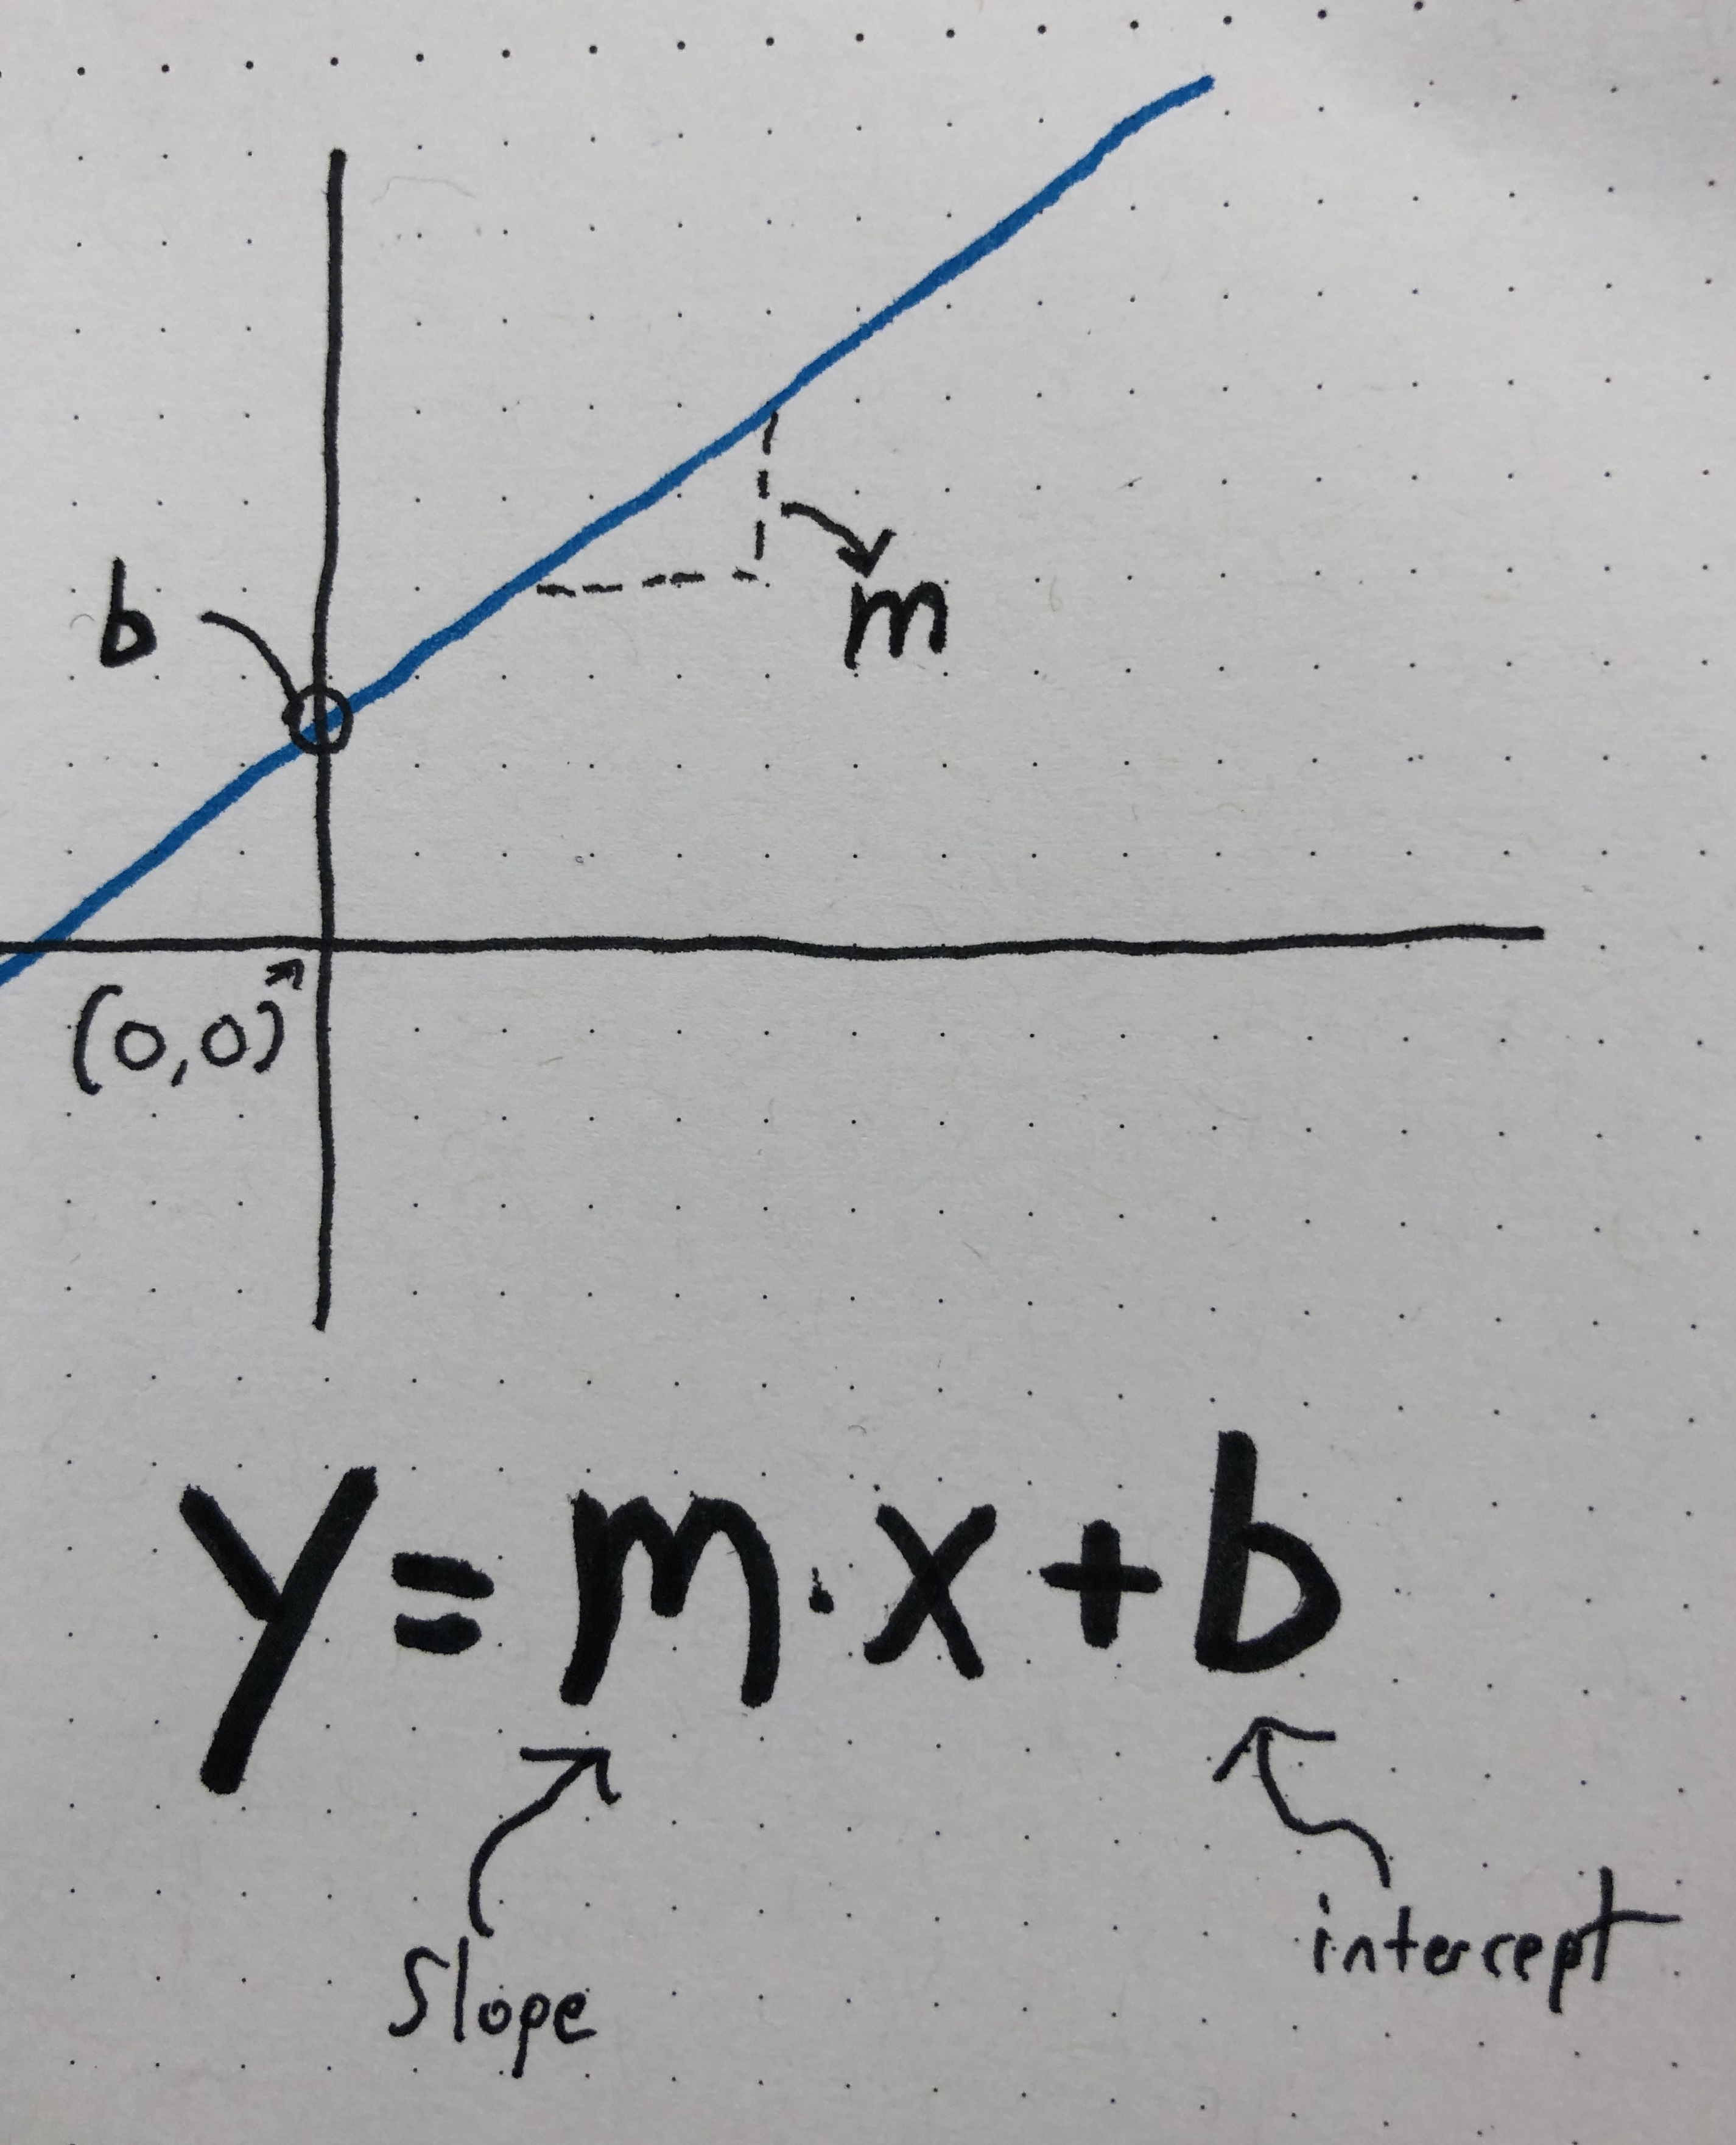 m
b
(0,0)
y = m · x + b
Slope
intercept